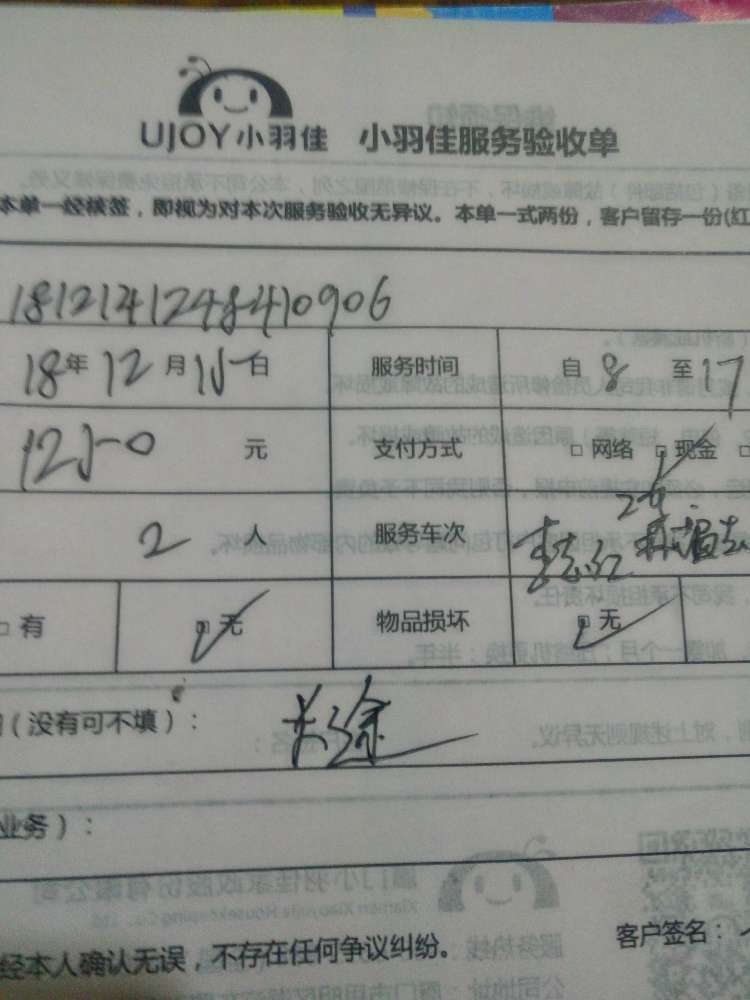 UJOY小羽佳 小羽佳服务验收单
本单一经核签，即视为对本次服务验收无异议。本单一式两份，客户留存一份(红
1812141248410906
18年12月15日 服务时间 自8 至17
1250元 支付方式 □网络 □现金
2人 服务车次 2车
□有 □无 物品损坏 □无
(没有可不填)： 长途
业务)：
经本人确认无误，不存在任何争议纠纷。
客户签名：